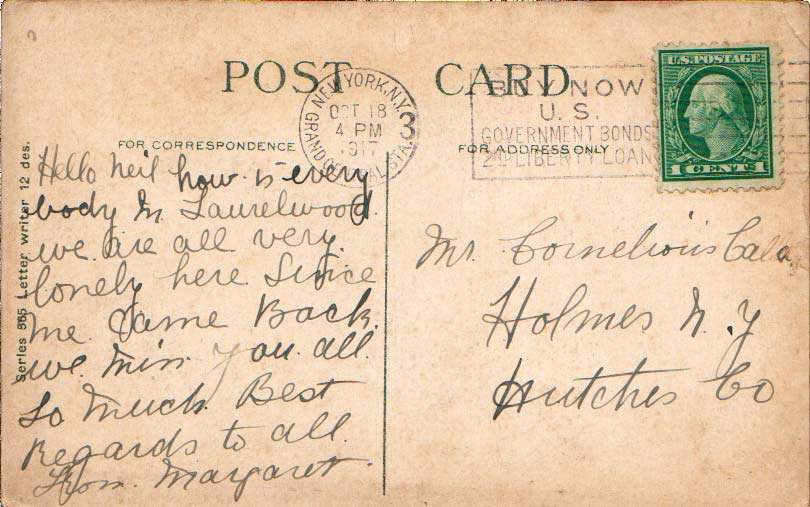 POST CARD
NEW YORK, N.Y.
GRAND CENTRAL STA.
OCT 18
4 PM
1917
3
BUY NOW
U. S.
GOVERNMENT BONDS
2ND LIBERTY LOAN
U.S. POSTAGE
1 CENTS 1
FOR CORRESPONDENCE
FOR ADDRESS ONLY
Series 565 Letter writer 12 des.
Hello Neil how is every
body in Laurelwood
we are all very
lonely here Since
me Came Back.
we miss you all
So much. Best
Regards to all.
From Margaret.
Mr. Cornelious
Holmes N. Y
Hutches Co